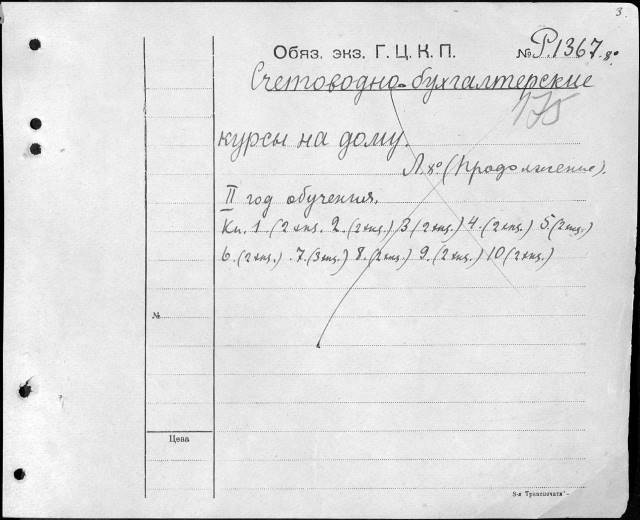 3.
Обяз. экз. Г. Ц. К. П. № Р.1367.8°
Счетоводно-бухгалтерские
175
курсы на дому.
Л. 8° (Продолжение).
II год обучения.
Кн. 1. (2 экц. 2. (2 экц.) 3 (2 экц.) 4. (2 экц.) 5. (2 экц.)
6. (2 экц.) . 7. (3 экц.) 8. (2 экц.) 9. (2 экц.) 10 (2 экц.)
№
Цена
3-я Транспечати